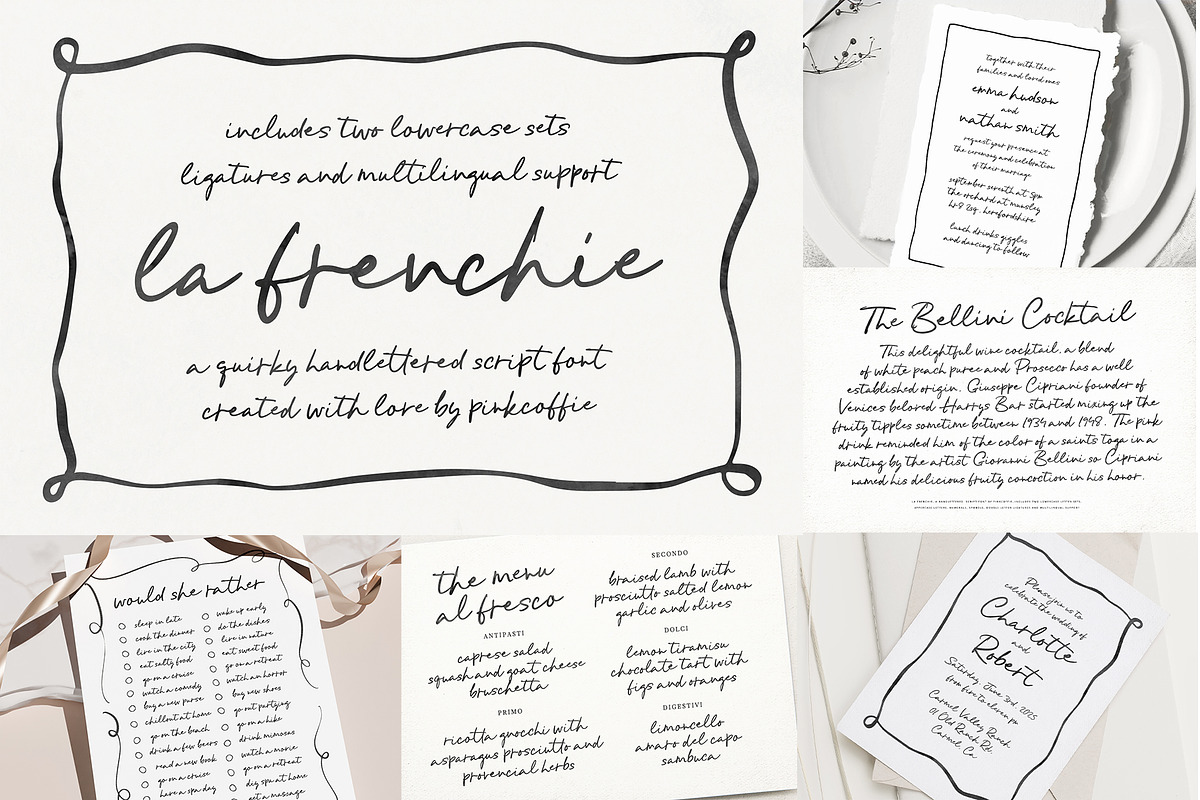 includes two lowercase sets
ligatures and multilingual support
la frenchie
a quirky handlettered script font
created with love by pinkcoffie
together with their
families and loved ones
emma hudson
and
nathan smith
request your presence at
the ceremony and celebration
of their marriage
september seventh at 5pm
the orchard at munsley
hr8 2sq. herefordshire
lunch drinks giggles
and dancing to follow
The Bellini Cocktail
This delightful wine cocktail, a blend
of white peach puree and Prosecco has a well
established origin. Giuseppe Cipriani founder of
Venices beloved Harrys Bar started mixing up the
fruity tipples sometime between 1934 and 1948. The pink
drink reminded him of the color of a saints toga in a
painting by the artist Giovanni Bellini so Cipriani
named his delicious fruity concoction in his honor.
would she rather
sleep in late
cook the dinner
live in the city
eat salty food
go on a cruise
watch a comedy
buy a new purse
chillout at home
go on the beach
drink a few beers
read a new book
go on a cruise
have a spa day
wake up early
do the dishes
live in nature
eat sweet food
go on a retreat
watch an horror
buy new shoes
go out partying
go on a hike
drink mimosas
watch a movie
go on a retreat
diy spa at home
get a massage
the menu
al fresco
ANTIPASTI
caprese salad
squash and goat cheese
bruschetta
PRIMO
ricotta gnocchi with
asparagus prosciutto and
provencial herbs
SECONDO
braised lamb with
prosciutto salted lemon
garlic and olives
DOLCI
lemon tiramisu
chocolate tart with
figs and oranges
DIGESTIVI
limoncello
amaro del capo
sambuca
Please join us to
celebrate the wedding of
Charlotte
and
Robert
Saturday, June 3rd, 2025
from five to eleven pm
Carmel Valley Ranch
01 Old Ranch Rd.
Carmel, Ca